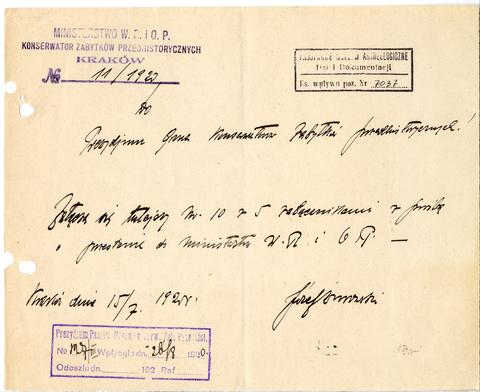 MINISTERSTWO W. R. i O. P.
KONSERWATOR ZABYTKÓW PRZEDHISTORYCZNYCH
KRAKÓW
№ 11/1920
Państwowe Muzeum Archeologiczne
Dział Dokumentacji
Ks. wpływu poz. Nr 7037
Do
Prezydjum Grona Konserwatorów Zabytków przedhistorycznych!
Zgłasza się tutejszy nr. 10 z 5 załącznikami z prośbą
o przesłanie do Ministerstwa W. R. i O. P. —
Kraków dnia 15/7. 1920 r.
Józef Żurowski
Prezydjum Państw. Grona Konserw. Zab. Przedhist.
№ Wpłynęło dn. 20/8 1920.
Odesłano dn. 192 Ref